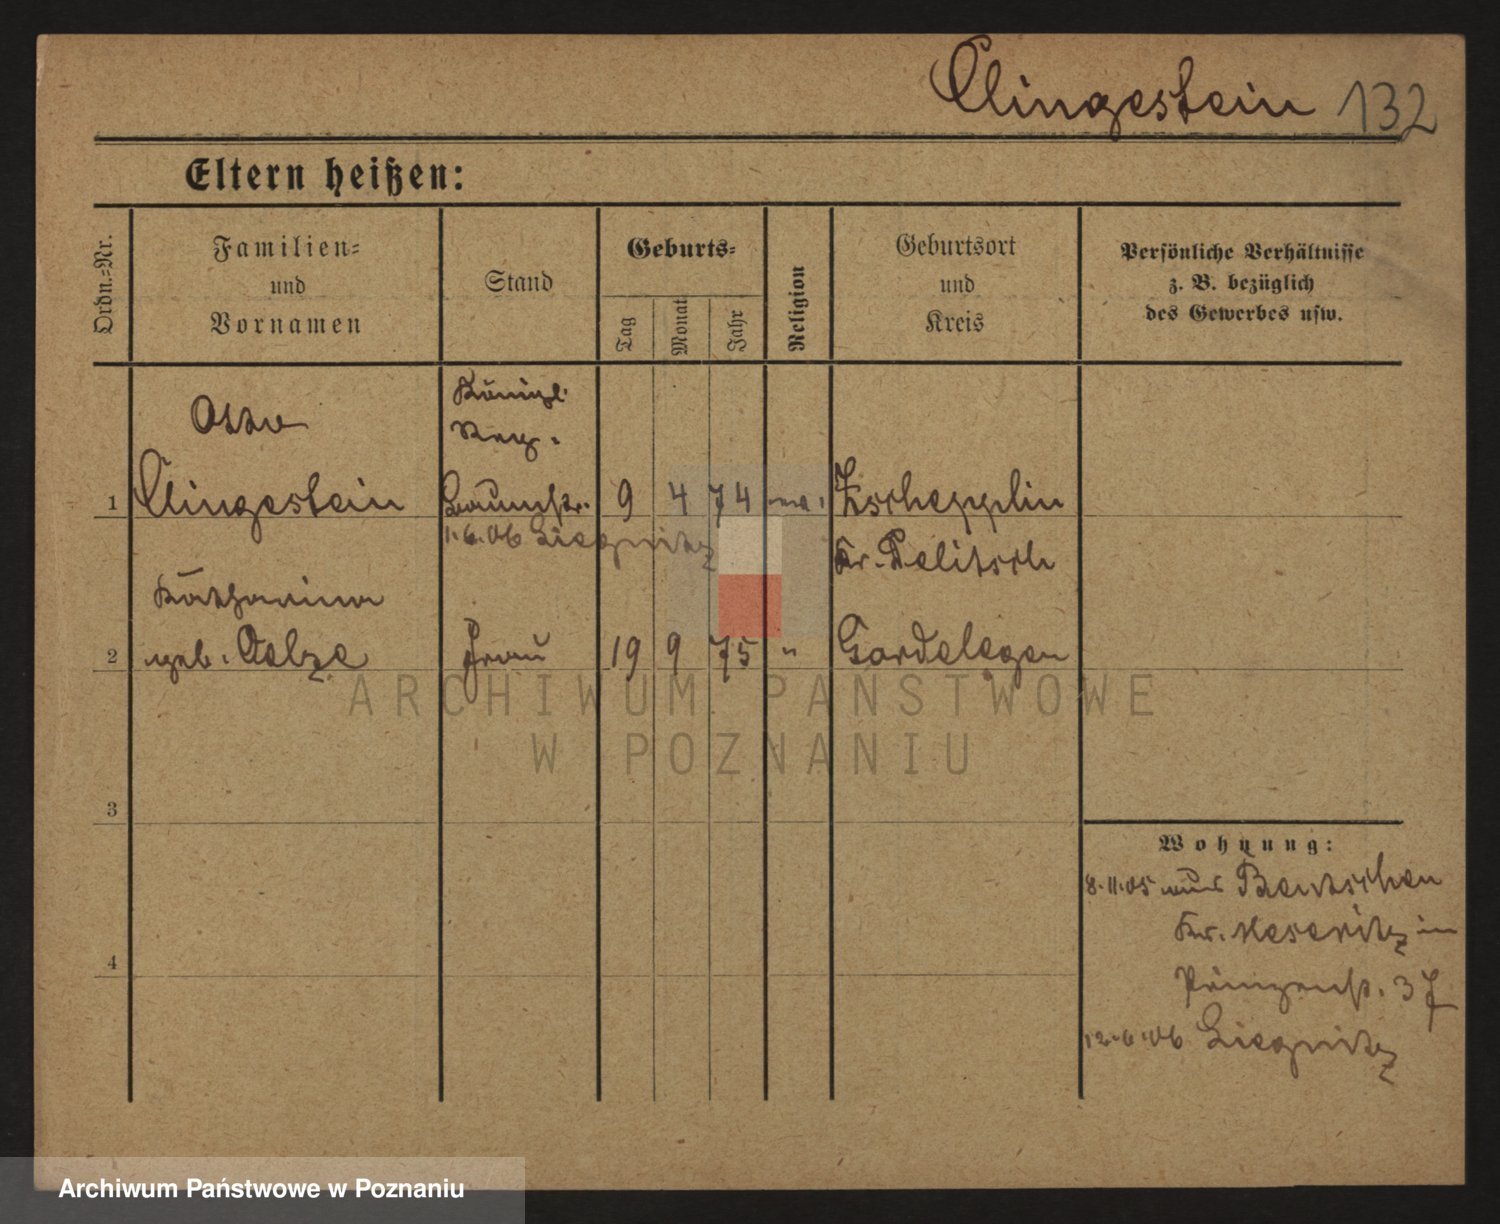 Clingestein 132
Eltern heißen:
Ordn.-Nr.
Familien-
und
Vornamen
Stand
Geburts-
Tag
Monat
Jahr
Religion
Geburtsort
und
Kreis
Persönliche Verhältnisse
z. B. bezüglich
des Gewerbes usw.
Otto
Königl.
Reg.
1 Clingestein Baumstr. 9 4 74 Zscheppelin
1.6.06 Liegnitz
Kr. Delitsch
Katharina
2 geb. Oelze Frau 19 9 75 " Gardelegen
3
4
Wohnung:
8.11.05 aus Bentschen
Kr. Meseritz in
Prinzenstr. 37
12.6.06 Liegnitz
ARCHIWUM PAŃSTWOWE
W POZNANIU
Archiwum Państwowe w Poznaniu